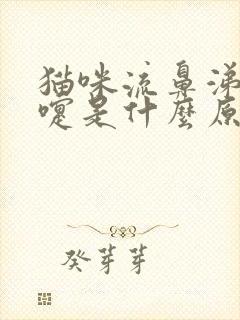 猫咪流鼻涕
嚏是什麼原
癸芽芽